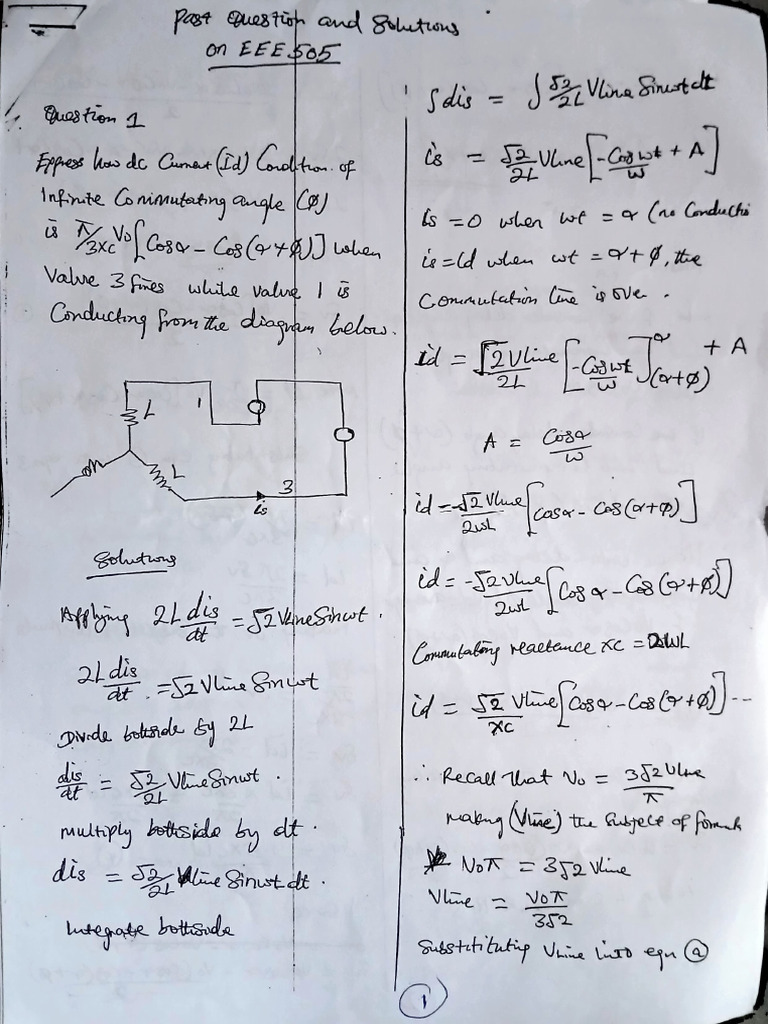 Past Question and Solutions
on EEE 505
Question 1
Express how dc Current (Id) Condition of
Infinite Commutating angle (Ø)
is π/3xc Vo[Cosα – Cos(α+Ø)] when
Valve 3 fires while valve 1 is
Conducting from the diagram below.
L 1
L
3
is
Solutions
Applying 2L dis/dt = √2 Vline Sinwt.
2L dis/dt. = √2 Vline Sinwt
Divide bothside by 2L
dis/dt = √2/2L Vline Sinwt.
multiply bothside by dt.
dis = √2/2L Vline Sinwt dt.
Integrate bothside
∫dis = ∫ √2/2L Vline Sinwt dt
is = √2/2L Vline [-Coswt/w + A]
is = 0 when wt = α (no Conductio
is = id when wt = α + Ø, the
Commutation line is over.
id = √2 Vline/2L [-Coswt/w]α(α+Ø) + A
A = Cosα/w
id = √2 Vline/2wL [cosα – Cos(α+Ø)]
id = -√2 Vline/2wL [Cosα – Cos(α+Ø)]
Commutating reactance xc = 2WL
id = √2/xc Vline [Cosα – Cos(α+Ø)] ---
∴ Recall that Vo = 3√2 Vline/π
making (Vline) the subject of formula
Voπ = 3√2 Vline
Vline = Voπ/3√2
Substituting Vline into eqn (a)
1